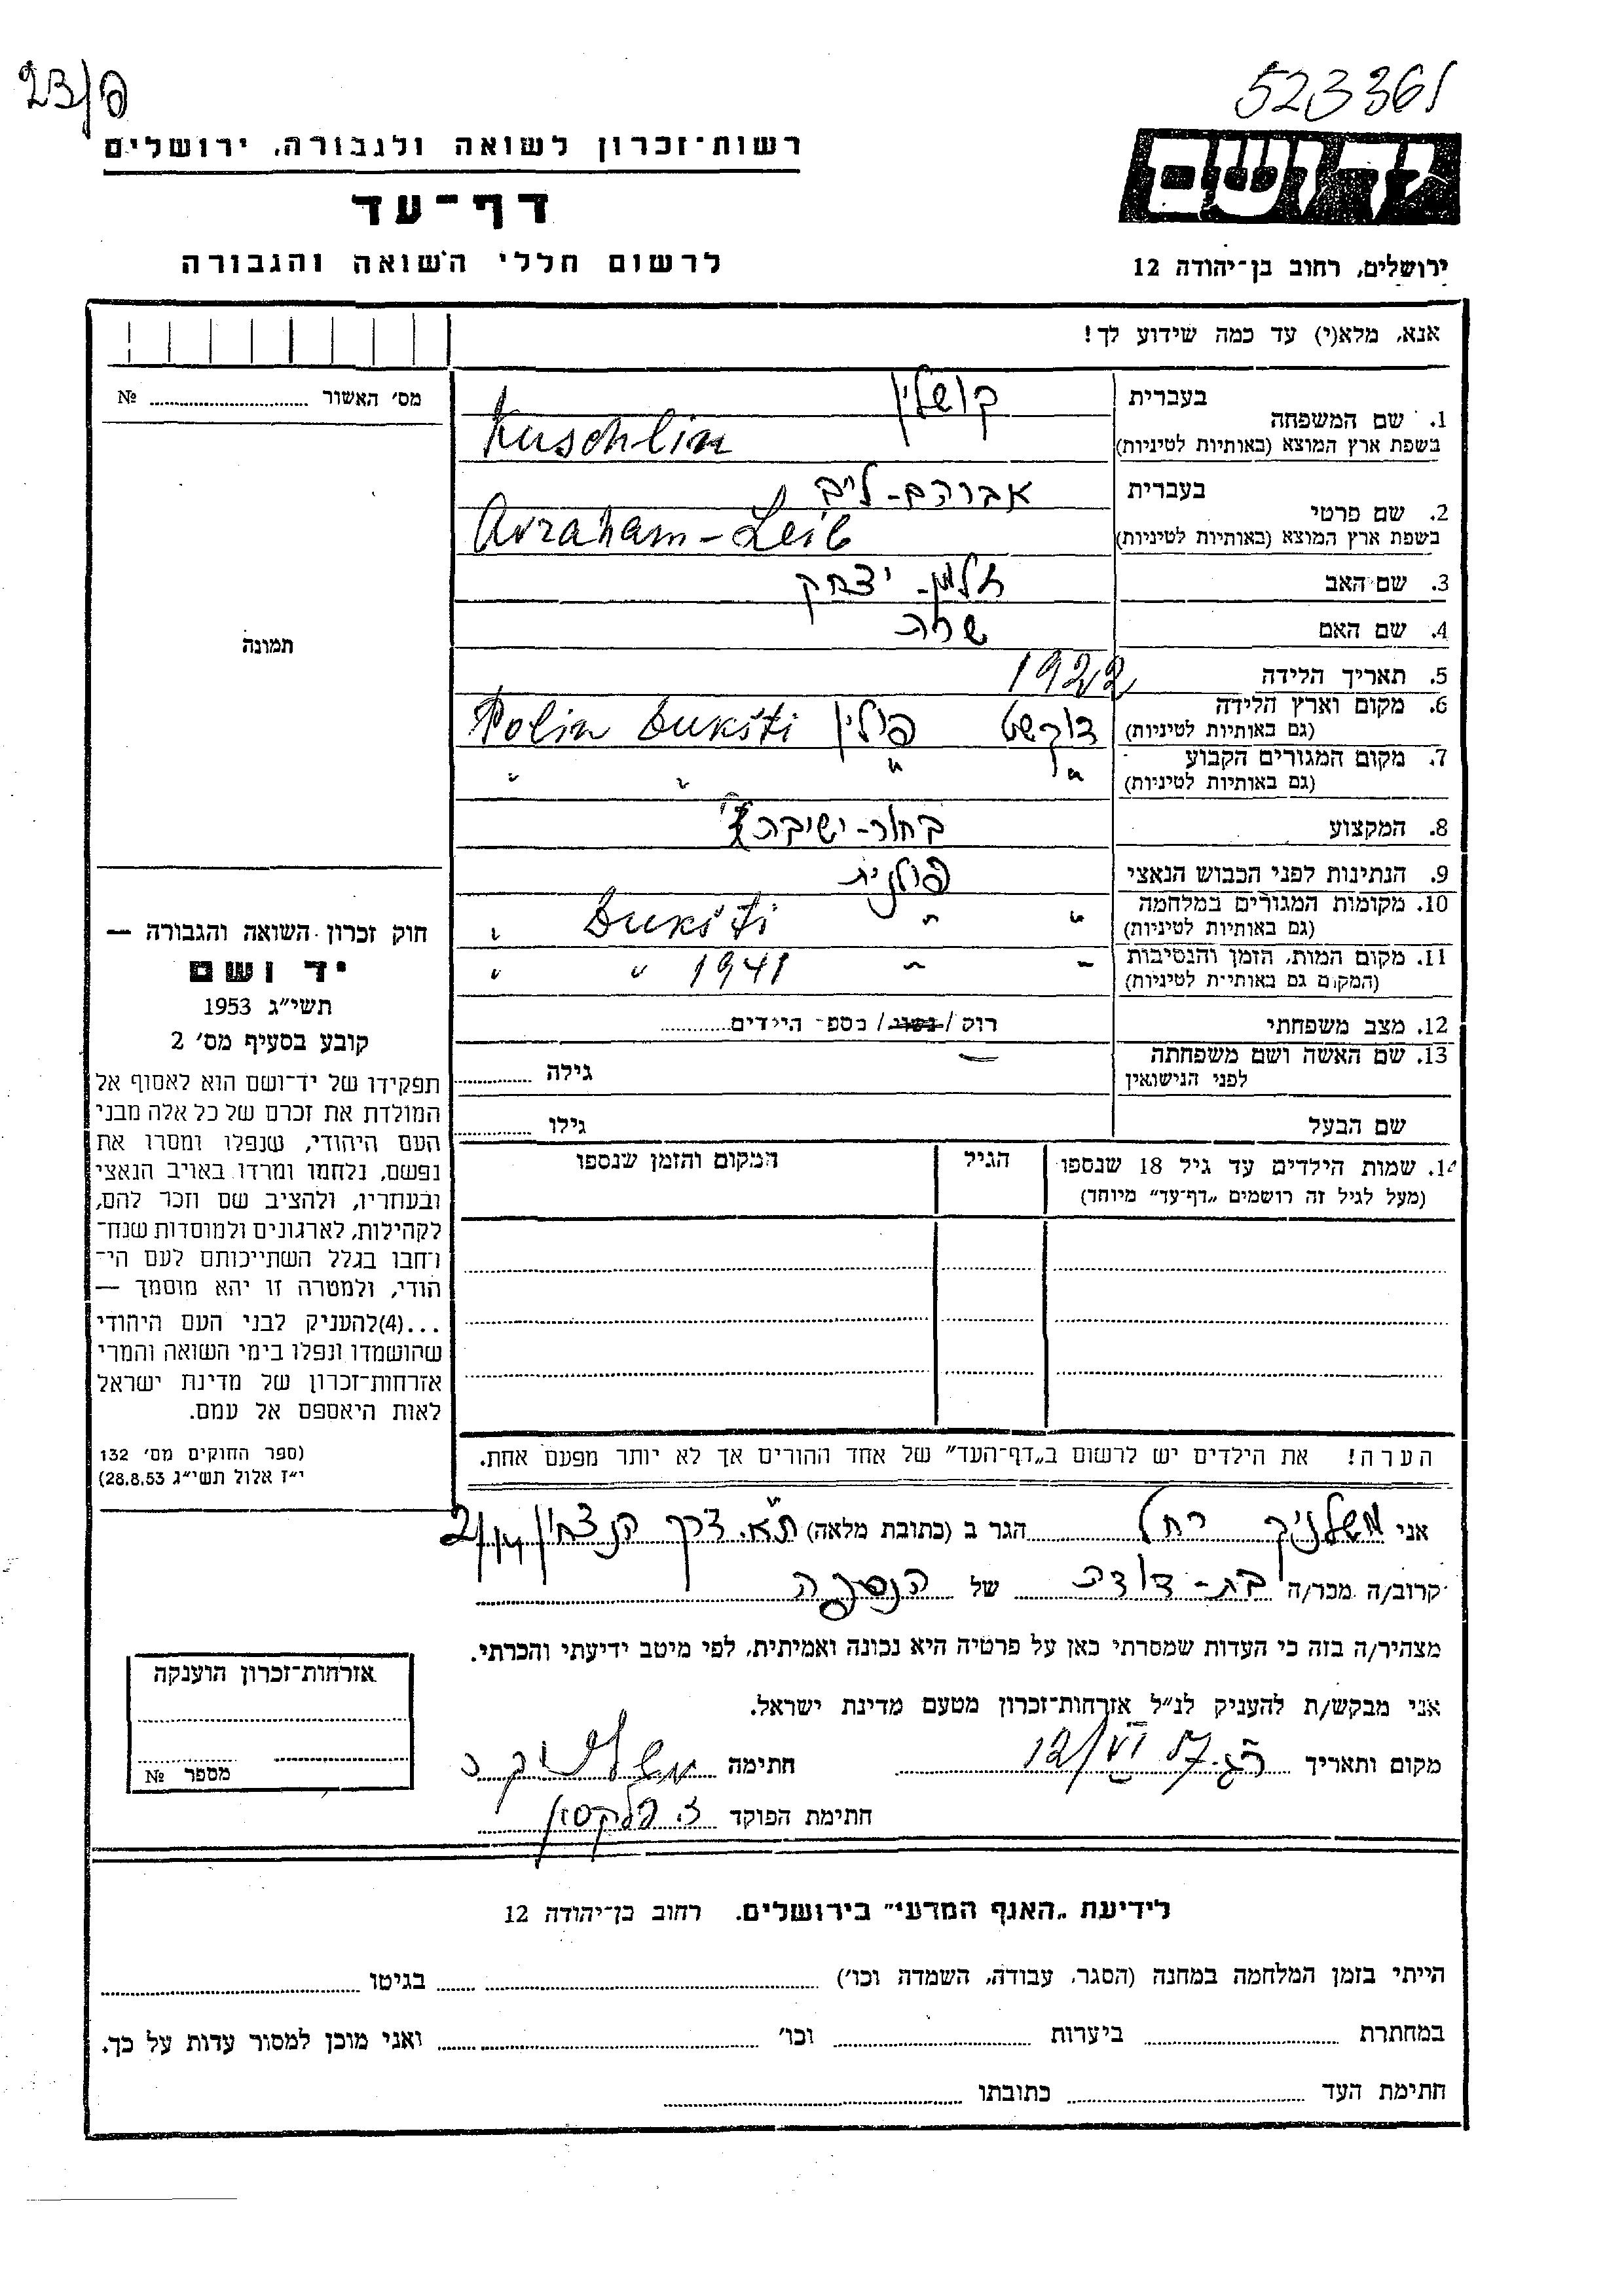 23/פ
523361
רשות־זכרון לשואה ולגבורה, ירושלים
יד ושם
דף־עד
לרשום חללי השואה והגבורה
ירושלים, רחוב בן־יהודה 12
אנא, מלא(י) עד כמה שידוע לך!
מס' האשור № 
תמונה
1. שם המשפחה
בעברית קושלין
בשפת ארץ המוצא (באותיות לטיניות) Kuschlin
2. שם פרטי
בעברית אברהם-לייב
בשפת ארץ המוצא (באותיות לטיניות) Avraham-Leib
3. שם האב זלמן-יצחק
4. שם האם שרה
5. תאריך הלידה 1922
6. מקום וארץ הלידה (גם באותיות לטיניות) דוקשט פולין Polin Dukšti
7. מקום המגורים הקבוע (גם באותיות לטיניות) " " " "
8. המקצוע בחור-ישיבה
9. הנתינות לפני הכבוש הנאצי פולנית
10. מקומות המגורים במלחמה (גם באותיות לטיניות) " " Dukšti "
11. מקום המות, הזמן והנסיבות (המקום גם באותיות לטיניות) " " 1941 " "
12. מצב משפחתי רווק / נשוי / מספר הילדים
13. שם האשה ושם משפחתה לפני הנישואין — גילה
שם הבעל גילו
14. שמות הילדים עד גיל 18 שנספו (מעל לגיל זה רושמים „דף־עד" מיוחד)
הגיל
המקום והזמן שנספו
חוק זכרון השואה והגבורה —
יד ושם
תשי"ג 1953
קובע בסעיף מס' 2
תפקידו של יד־ושם הוא לאסוף אל
המולדת את זכרם של כל אלה מבני
העם היהודי, שנפלו ומסרו את
נפשם, נלחמו ומרדו באויב הנאצי
ובעוזריו, ולהציב שם וזכר להם,
לקהילות, לארגונים ולמוסדות שנח־
רחבו בגלל השתייכותם לעם הי־
הודי, ולמטרה זו יהא מוסמך —
...(4)להעניק לבני העם היהודי
שהושמדו ונפלו בימי השואה והמרי
אזרחות־זכרון של מדינת ישראל
לאות היאספם אל עמם.
(ספר החוקים מס' 132
י"ז אלול תשי"ג 28.8.53)
הערה! את הילדים יש לרשום ב„דף־העד" של אחד ההורים אך לא יותר מפעם אחת.
אני משלניק רחל הגר ב (כתובת מלאה) ת"א. דרך הנצחון 2/14
קרוב/ה מכר/ה בת-דודה של הנספה
מצהיר/ה בזה כי העדות שמסרתי כאן על פרטיה היא נכונה ואמיתית, לפי מיטב ידיעתי והכרתי.
אני מבקש/ת להעניק לנ"ל אזרחות־זכרון מטעם מדינת ישראל.
מקום ותאריך 12/VI 57 חתימה משלניק ר
חתימת הפוקד
אזרחות־זכרון הוענקה
מספר №
לידיעת „האגף המדעי" בירושלים. רחוב בן־יהודה 12
הייתי בזמן המלחמה במחנה (הסגר, עבודה, השמדה וכו') בגיטו
במחתרת ביערות וכו' ואני מוכן למסור עדות על כך.
חתימת העד כתובתו